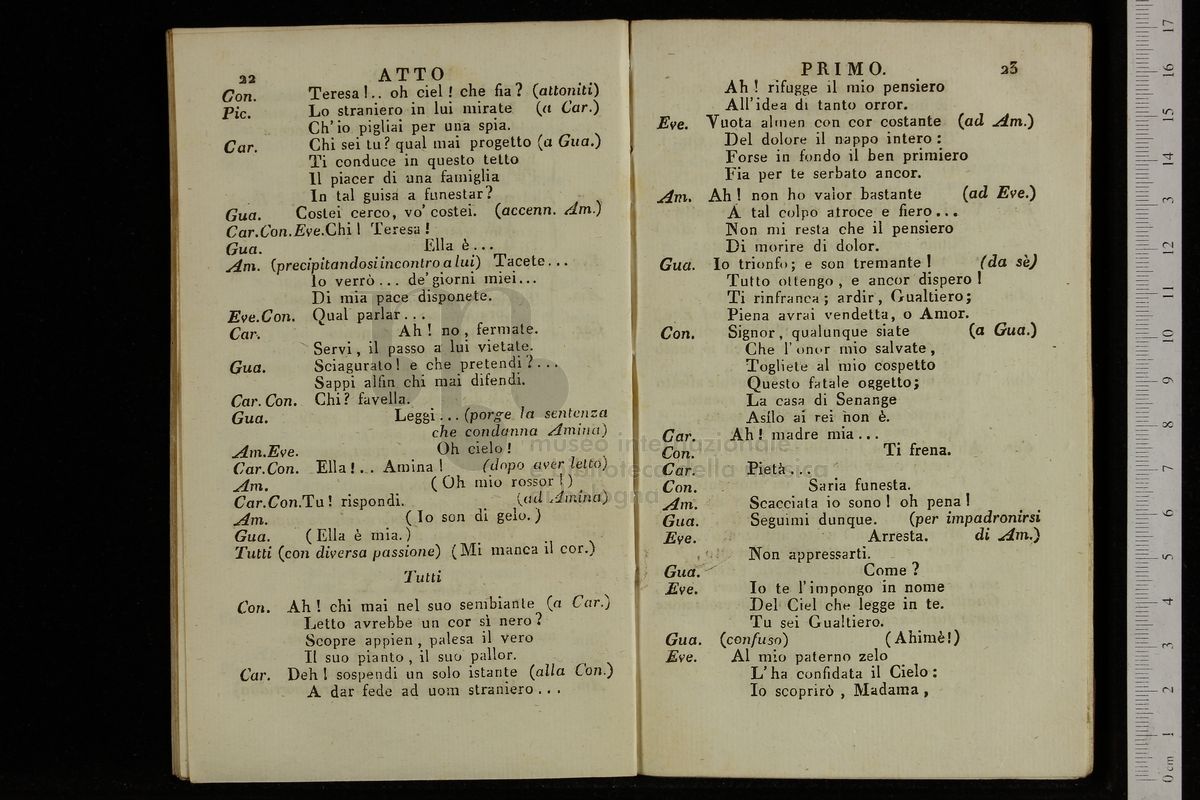 22 ATTO
Con. Teresa!.. oh ciel! che fia? (attoniti)
Pic. Lo straniero in lui mirate (a Car.)
Ch'io pigliai per una spia.
Car. Chi sei tu? qual mai progetto (a Gua.)
Ti conduce in questo tetto
Il piacer di una famiglia
In tal guisa a funestar?
Gua. Costei cerco, vo' costei. (accenn. Am.)
Car.Con.Eve.Chi! Teresa!
Gua. Ella è...
Am. (precipitandosi incontro a lui) Tacete...
Io verrò... de' giorni miei...
Di mia pace disponete.
Eve.Con. Qual parlar...
Car. Ah! no, fermate.
Servi, il passo a lui vietate.
Gua. Sciagurato! e che pretendi?...
Sappi alfin chi mai difendi.
Car. Con. Chi? favella.
Gua. Leggi... (porge la sentenza
che condanna Amina)
Am.Eve. Oh cielo!
Car.Con. Ella!.. Amina! (dopo aver letto)
Am. (Oh mio rossor!)
Car.Con.Tu! rispondi. (ad Amina)
Am. (Io son di gelo.)
Gua. (Ella è mia.)
Tutti (con diversa passione) (Mi manca il cor.)
Tutti
Con. Ah! chi mai nel suo sembiante (a Car.)
Letto avrebbe un cor sì nero?
Scopre appien, palesa il vero
Il suo pianto, il suo pallor.
Car. Deh! sospendi un solo istante (alla Con.)
A dar fede ad uom straniero...
PRIMO. 23
Ah! rifugge il mio pensiero
All'idea di tanto orror.
Eve. Vuota almen con cor costante (ad Am.)
Del dolore il nappo intero:
Forse in fondo il ben primiero
Fia per te serbato ancor.
Am. Ah! non ho valor bastante (ad Eve.)
A tal colpo atroce e fiero...
Non mi resta che il pensiero
Di morire di dolor.
Gua. Io trionfo; e son tremante! (da sè)
Tutto ottengo, e ancor dispero!
Ti rinfranca; ardir, Gualtiero;
Piena avrai vendetta, o Amor.
Con. Signor, qualunque siate (a Gua.)
Che l'onor mio salvate,
Togliete al mio cospetto
Questo fatale oggetto;
La casa di Senange
Asilo ai rei non è.
Car. Ah! madre mia...
Con. Ti frena.
Car. Pietà...
Con. Saria funesta.
Am. Scacciata io sono! oh pena!
Gua. Seguimi dunque. (per impadronirsi
Eve. Arresta. di Am.)
Non appressarti.
Gua. Come?
Eve. Io te l'impongo in nome
Del Ciel che legge in te.
Tu sei Gualtiero.
Gua. (confuso) (Ahimè!)
Eve. Al mio paterno zelo
L'ha confidata il Cielo:
Io scoprirò, Madama,
museo internazionale
e biblioteca della musica
di bologna
0 cm 1 2 3 4 5 6 7 8 9 10 11 12 13 14 15 16 17